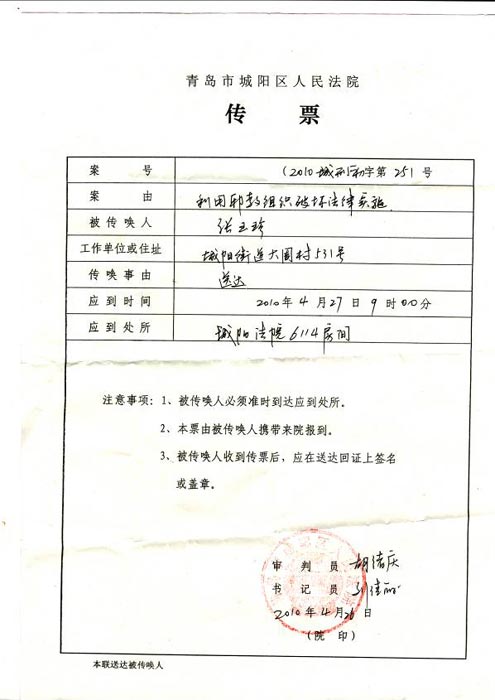 青岛市城阳区人民法院
传票
案号 (2010城刑初字第251号
案由 利用邪教组织破坏法律实施
被传唤人 张玉珍
工作单位或住址 城阳街道大周村531号
传唤事由 送达
应到时间 2010年4月27日9时00分
应到处所 城阳法院6114房间
注意事项：1、被传唤人必须准时到达应到处所。
2、本票由被传唤人携带来院报到。
3、被传唤人收到传票后，应在送达回证上签名
或盖章。
审判员 胡绪庆
书记员
2010年4月26日
(院印)
本联送达被传唤人